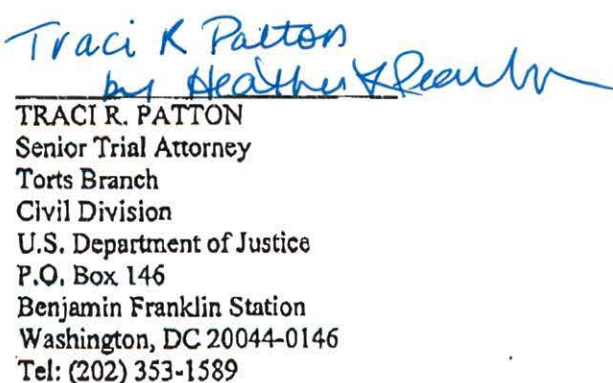 Traci R Patton
by Heather
TRACI R. PATTON
Senior Trial Attorney
Torts Branch
Civil Division
U.S. Department of Justice
P.O. Box 146
Benjamin Franklin Station
Washington, DC 20044-0146
Tel: (202) 353-1589